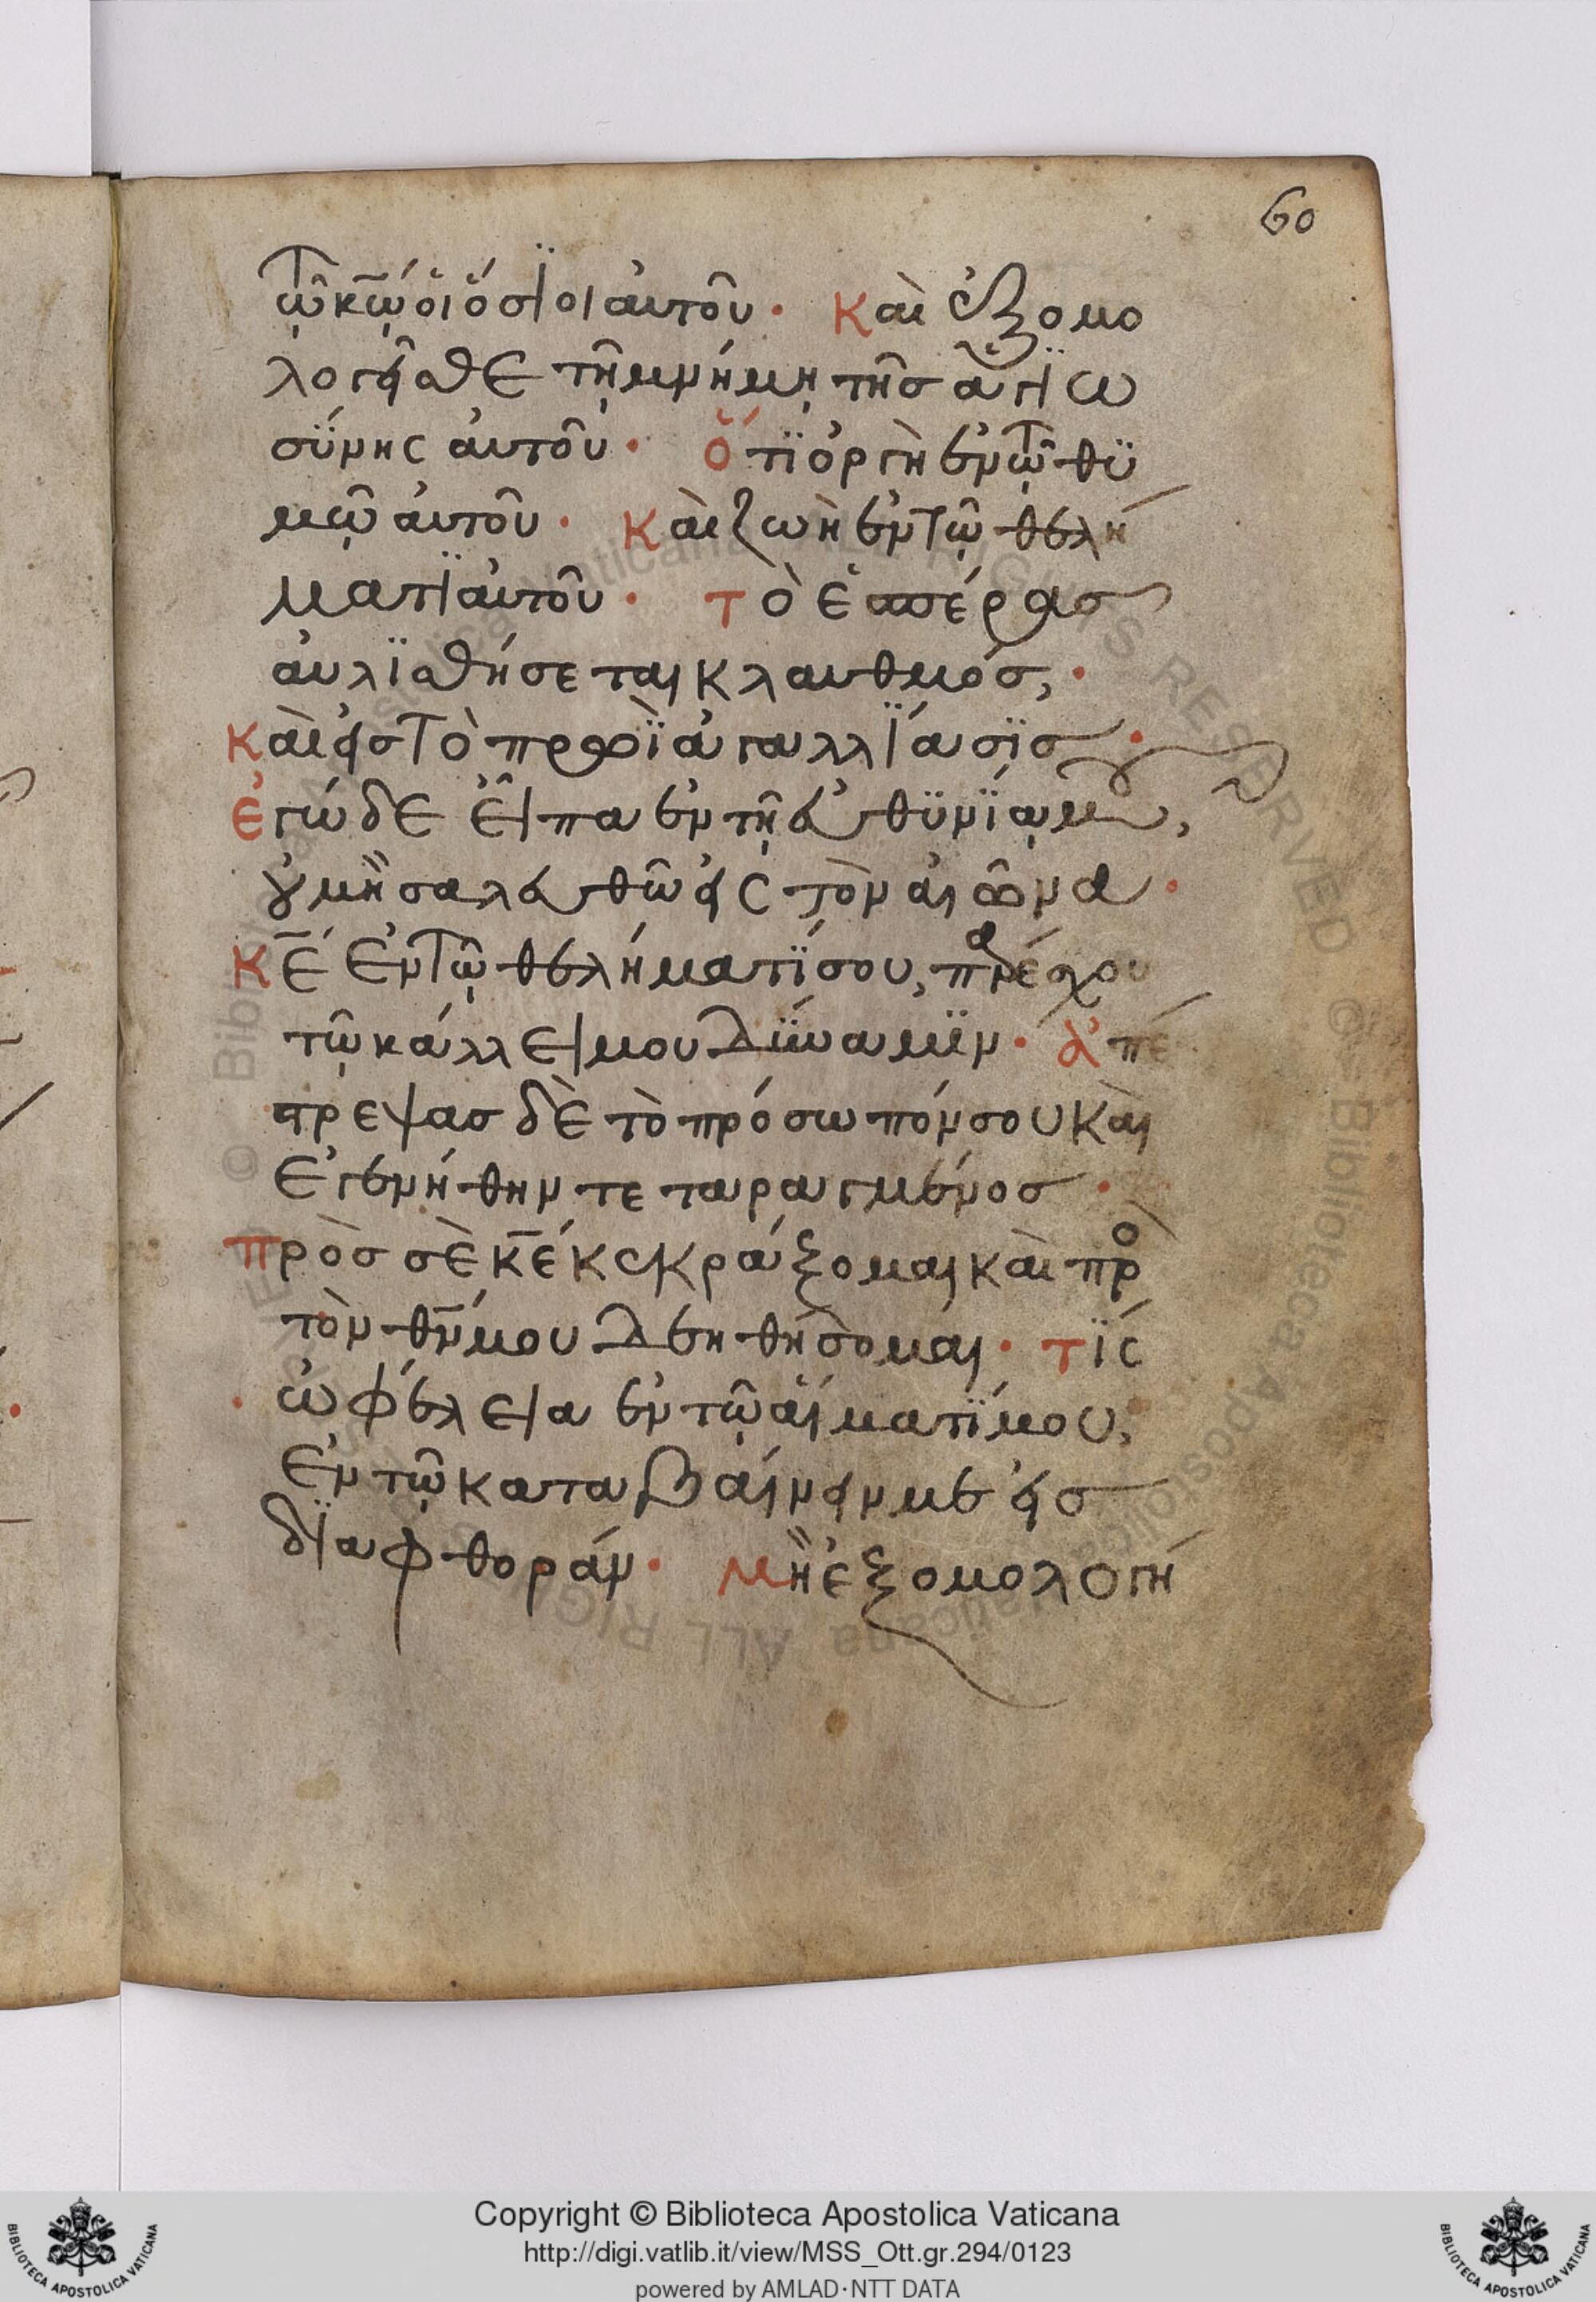 60
τῷ κ̅ῴ οἱ ὅσϊοι ἀυτοῦ· Καὶ ἐξομο
λογεῖσθε τῇ μνήμῃ τῆσ ἁγϊω
σΰνης ἀυτοῦ· ὅτϊ ὀργὴ ἐν τῷ θϋ
μῷ ἀυτοῦ· Καὶ ζωὴ ἐν τῷ θελή
ματϊ ἀυτοῦ· Τὸ ἑσπέρασ
ἀυλϊσθήσεται κλαυθμόσ,·
Καὶ εἰσ τὸ πρωῒ ἀγαλλΐασϊσ·
Ἐγώ δε εἶπα ἐν τῇ ἐυθϋνΐᾳ μου,
οὐ μὴ σαλευθῶ εἰς τὸν αἰῶνα·
Κ̅Έ Ἐν τῷ θελήματΐ σου, παρέσχου
τῷ κάλλει μου Δΰναμϊν· Ἀπέ
τρεψασ δὲ τὸ πρόσωπόν σου Καὶ
Ἐγενήθην τεταραγμένοσ·
Πρὸσ σὲ κ̅έ κεκράξομαι καὶ πρὸ
τὸν θ̅ν́ μου Δεηθήσομαι· Τΐς
ὠφέλεια ἐν τῷ αἵματΐ μου,
Ἐν τῷ καταβαίνειν με εἰσ
δϊαφθοράν· Μὴ ἐξομολογή
Copyright © Biblioteca Apostolica Vaticana
http://digi.vatlib.it/view/MSS_Ott.gr.294/0123
powered by AMLAD·NTT DATA